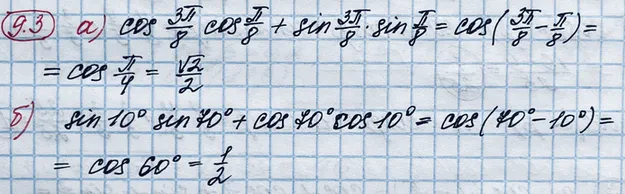 9.3 а) cos 3π/8 cos π/8 + sin 3π/8 · sin π/8 = cos(3π/8 − π/8) =
= cos π/4 = √2/2
б) sin 10° sin 70° + cos 70° cos 10° = cos(70° − 10°) =
= cos 60° = 1/2